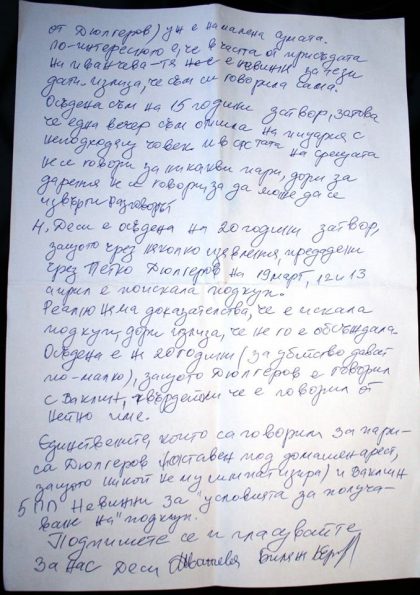 от Дюлгеров) уж е намалена сумата.
По-интересното е, че в частта от присъдата
на Иванчева-тя не е невинна за тези
дати-излиза, че съм си говорила сама.
Осъдена съм на 15 години затвор, затова
че една вечер съм отишла на пицария с
неподходящ човек и в на срещата
не се говори за никакви пари, дори за
дарения не се говори, за да може да се
извърти разговора
4. Деси е осъдена на 20 години затвор,
защото чрез няколко изявления, предадени
чрез Петко Дюлгеров на 19 март, 12 и 13
април е поискала подкуп.
Реално няма доказателства, че е искала
подкупи, дори излиза, че не го е обсъждала.
Осъдена е на 20 години (за убийство дават
по-малко), защото Дюлгеров е говорил
с Ваклин, твърдейки че е говорил от
нейно име.
Единствените, които са говорили за пари-
са Дюлгеров (поставен под домашен арест,
защото никой не му симпатизира) и Ваклин
5 ПП Невинни за "условията за получа-
ване на" подкуп.
Подпишете се и гласувайте
за нас Деси Иванчева Биляна